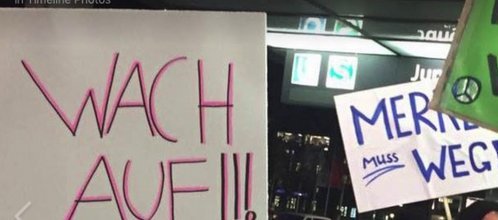 in Timeline Photos
WACH
AUF!!!
MERKE
MUSS WEG!